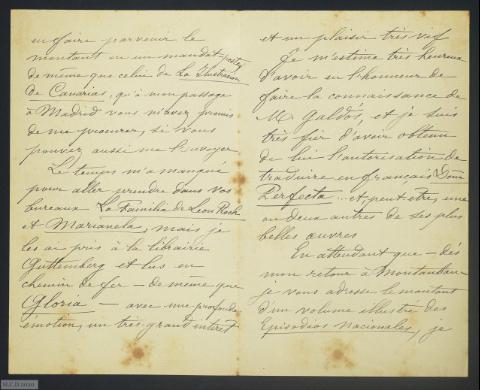 en faire parvenir le
montant en un mandat poste,
de même que celui de La Ilustracion
de Canarias, qu'à mon passage
à Madrid vous m'avez promis
de me procurer, si vous
pouvez aussi me l'envoyer.
Le temps m'a manqué
pour aller prendre dans vos
bureaux La Familia de Leon Roch
et Marianela, mais je
les ai pris à la librairie
Guttemberg et lus en
chemin de fer — de même que
Gloria — avec une profonde
émotion, un très grand intérêt
et un plaisir très vif
Je m'estime très heureux
d'avoir eu l'honneur de
faire la connaissance de
Mr Galdós, et je suis
très fier d'avoir obtenu
de lui l'autorisation de
traduire en français Doña
Perfecta ... et, peut être, une
ou deux autres de ses plus
belles œuvres
En attendant que — dès
mon retour à Montauban
je vous adresse le montant
d'un volume illustré des
Episodios nacionales, je
M.C.D 2020